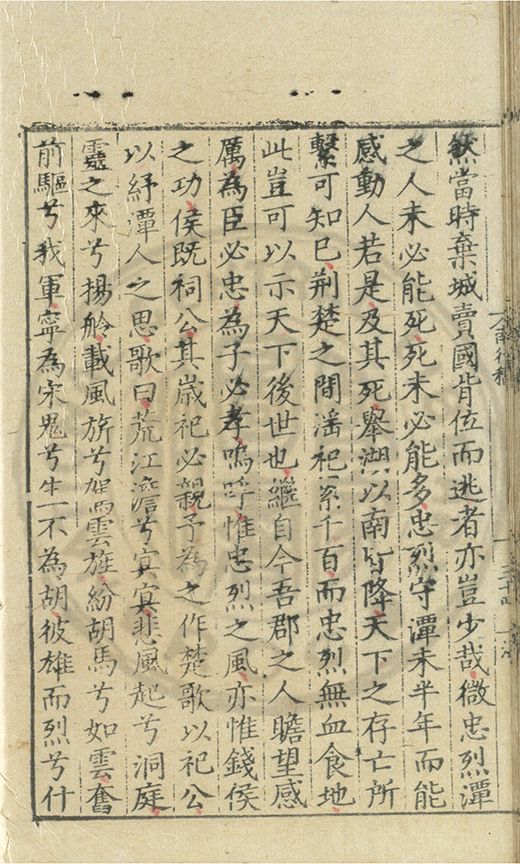 然當時棄城賣國背位而逃者亦豈少哉微忠烈潭
之人未必能死死未必能多忠烈守潭未半年而能
感動人若是及其死舉湖以南皆降天下之存亡所
繫可知已荆楚之間滛祀累千百而忠烈無血食地
此豈可以示天下後世也繼自今吾郡之人瞻望感
厲為臣必忠為子必孝嗚呼惟忠烈之風亦惟錢侯
之功侯既祠公其歳祀必親予為之作楚歌以祀公
以紓潭人之思歌曰荒江澹兮寘寘悲風起兮洞庭
靈之來兮揚舲載風旂兮駕雲旌紛胡馬兮如雲奮
前驅兮我軍寧為宋鬼兮生不為胡彼雄而烈兮什